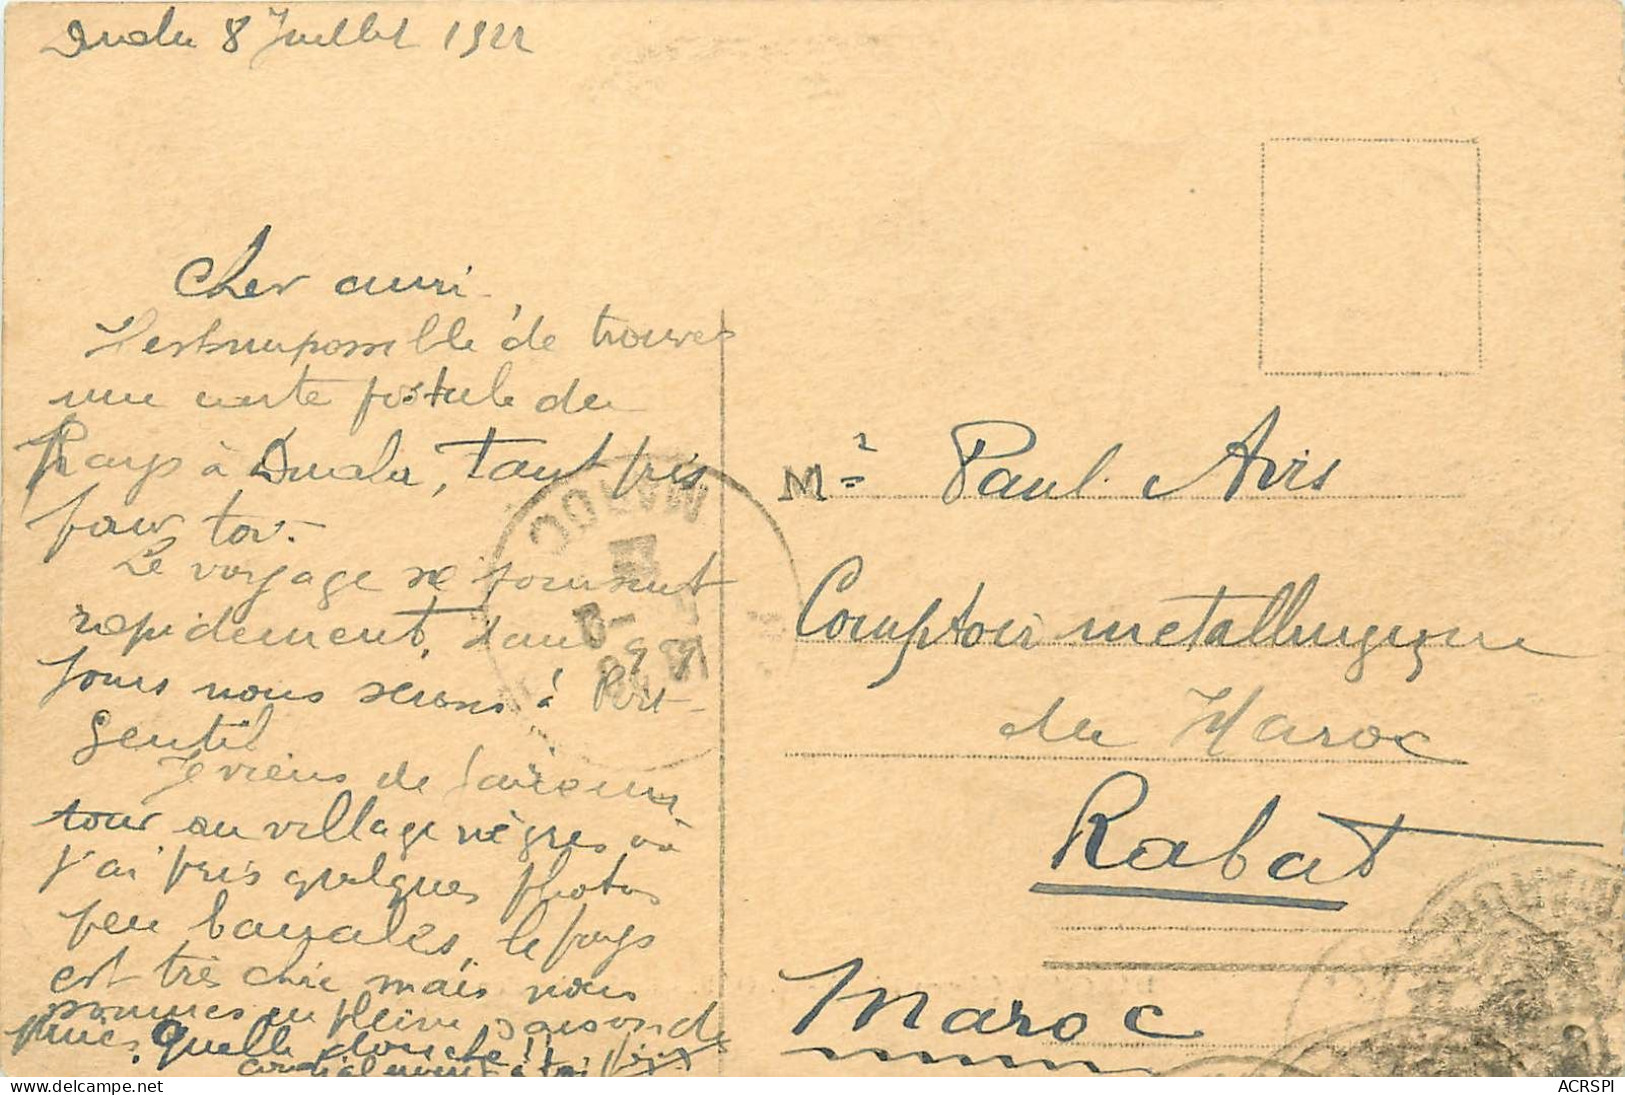 Duala 8 Juillet 1922
Cher ami
Il est impossible de trouver
une carte postale du
Pays à Duala, tant pis
pour toi.
Le voyage se poursuit
rapidement, dans
jours nous serons à Port-
Gentil
Je viens de faire un
tour au village nègres où
j'ai pris quelques photos
peu banales, le pays
est très chic mais nous
sommes en pleine saison des
pluies, quelle douche !!
cordialement à toi
Mr Paul Avis
Comptoir metallurgique
du Maroc
Rabat
Maroc
MAROC
https://www.delcampe.net
ACRSPI